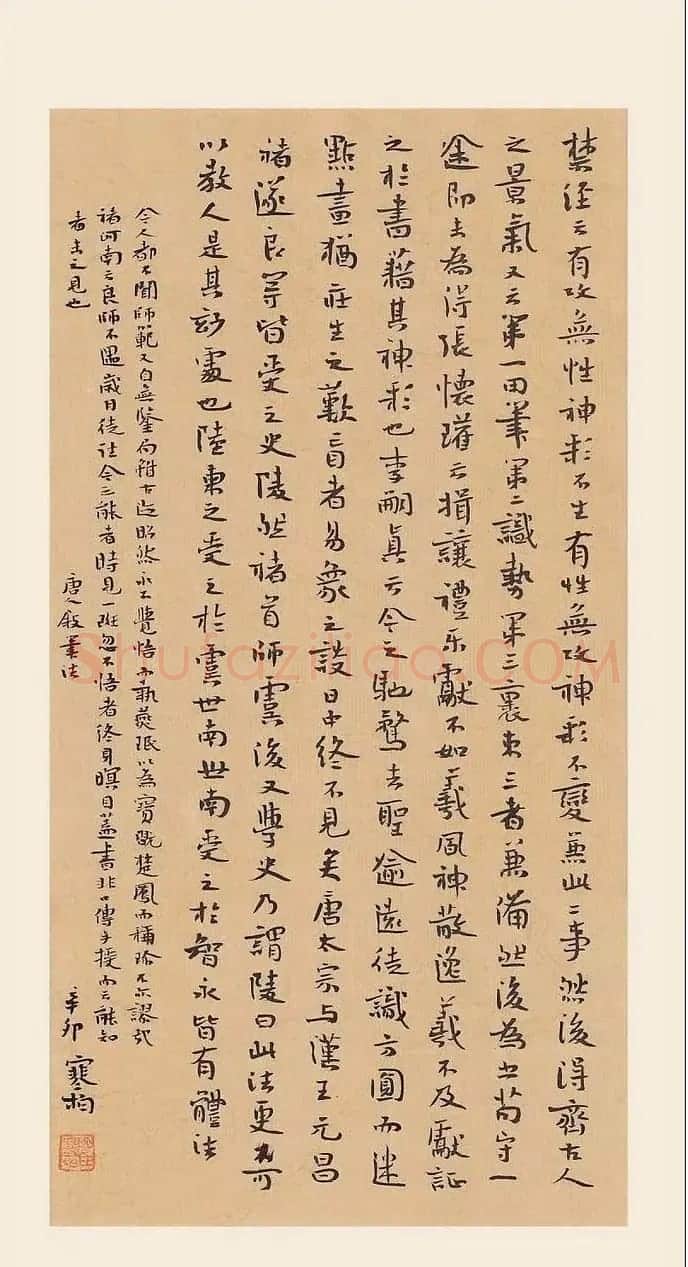 禁经云有攻無性神彩不生有性無攻神彩不變兼此二事然後得齊古人
之景氣又云第一用筆第二識勢第三裹束三者兼備然後為書苟守一
途即主為得張懷瓘云揖讓禮樂獻不如羲風神散逸羲不及獻証
之於書藉其神彩也李嗣真云今之馳騖去聖逾遠徒識方圓而迷
點畫猶莊生之歎盲者易象之談日中終不見矣唐太宗与漢王元昌
褚遂良等皆受之史陵然褚首師虞後又學史乃謂陵曰此法更不可
以教人是其妙處也陸柬之受之於虞世南世南受之於智永皆有體法
今人都不聞師範又自無鑒局雖古迹昭然永不覺悟而執燕珉以為寶既楚鳳而稱珍不亦謬哉
褚河南云良師不遇歲月徒往今之能者時見一班忽不悟者終身瞑目蓋書非口傳手授而云能知
者未之見也
唐人敘筆法
辛卯 寒柏
Shufaziliao.COM